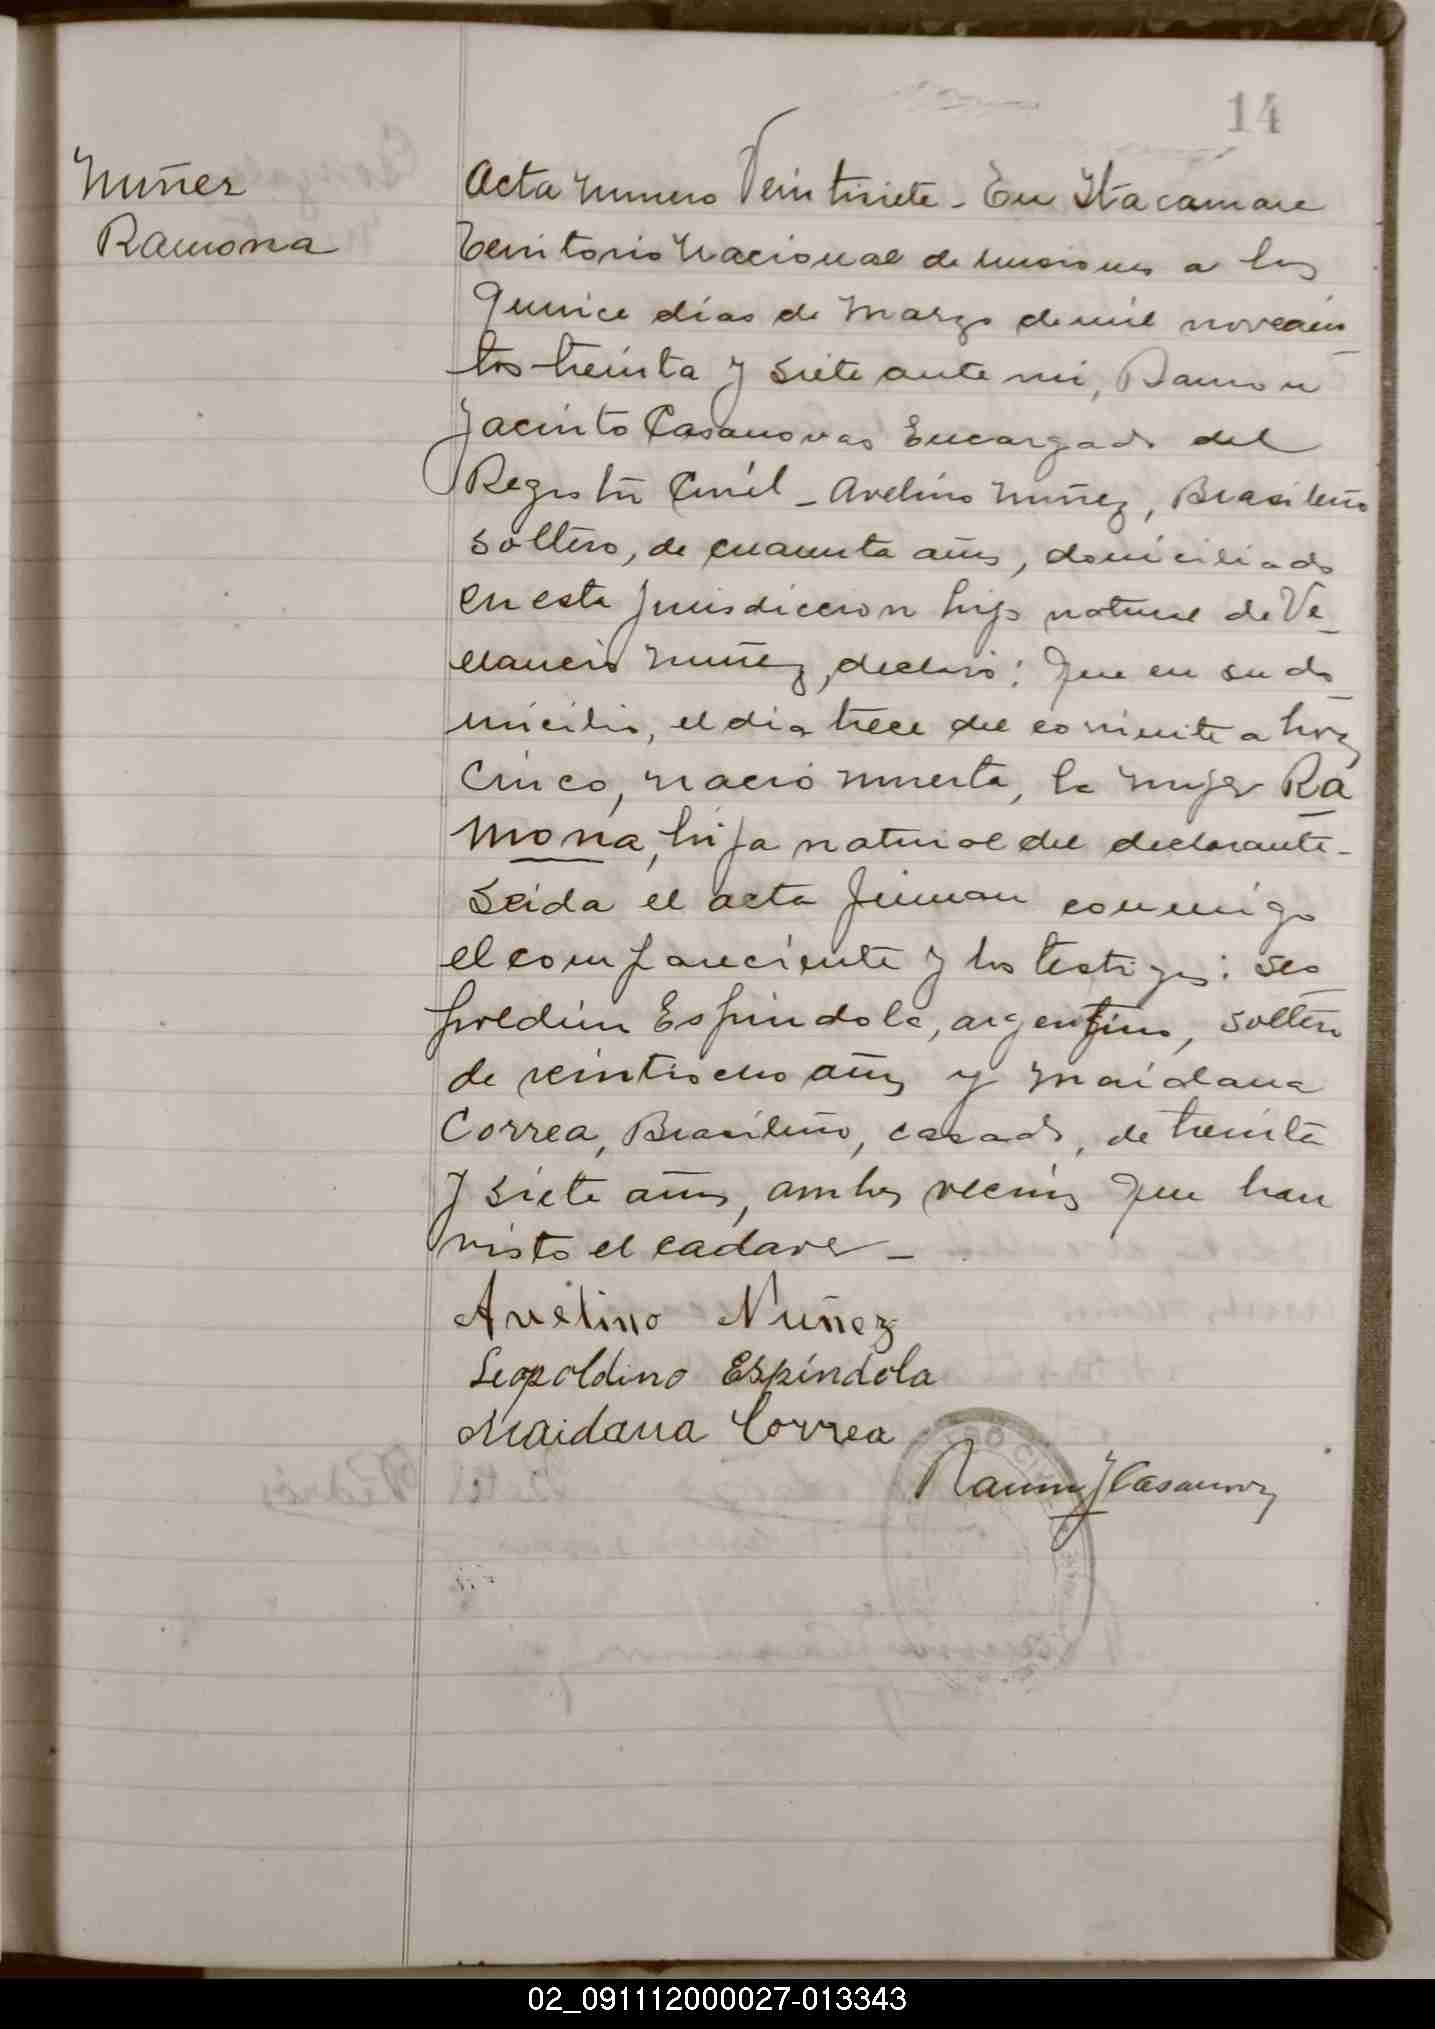 14
Nuñez
Ramona
Acta numero Veintisiete - En Itacaruare
Territorio Nacional de Misiones a los
quince dias de Marzo de mil novecien
tos treinta y siete ante mi, Ramon
Jacinto Casanovas Encargado del
Registro Civil - Avelino Nuñez, Brasileño
soltero, de cuarenta años, domiciliado
en esta jurisdiccion hijo natural de Ve_
nancio Nuñez, declaró: Que en su do_
micilio, el dia trece del corriente a hora
cinco, nació muerta, la mujer Ra
mona, hija natural del declarante-
Leida el acta firman conmigo
el compareciente y los testigos: Leo_
poldino Espindola, argentino, soltero
de veintiocho años y Maidana
Correa, Brasileño, casado, de treinta
y siete años, ambos vecinos que han
visto el cadaver_
Avelino Nuñez
Leopoldino Espíndola
Maidana Correa
Ramon J Casanovas
02_091112000027-013343